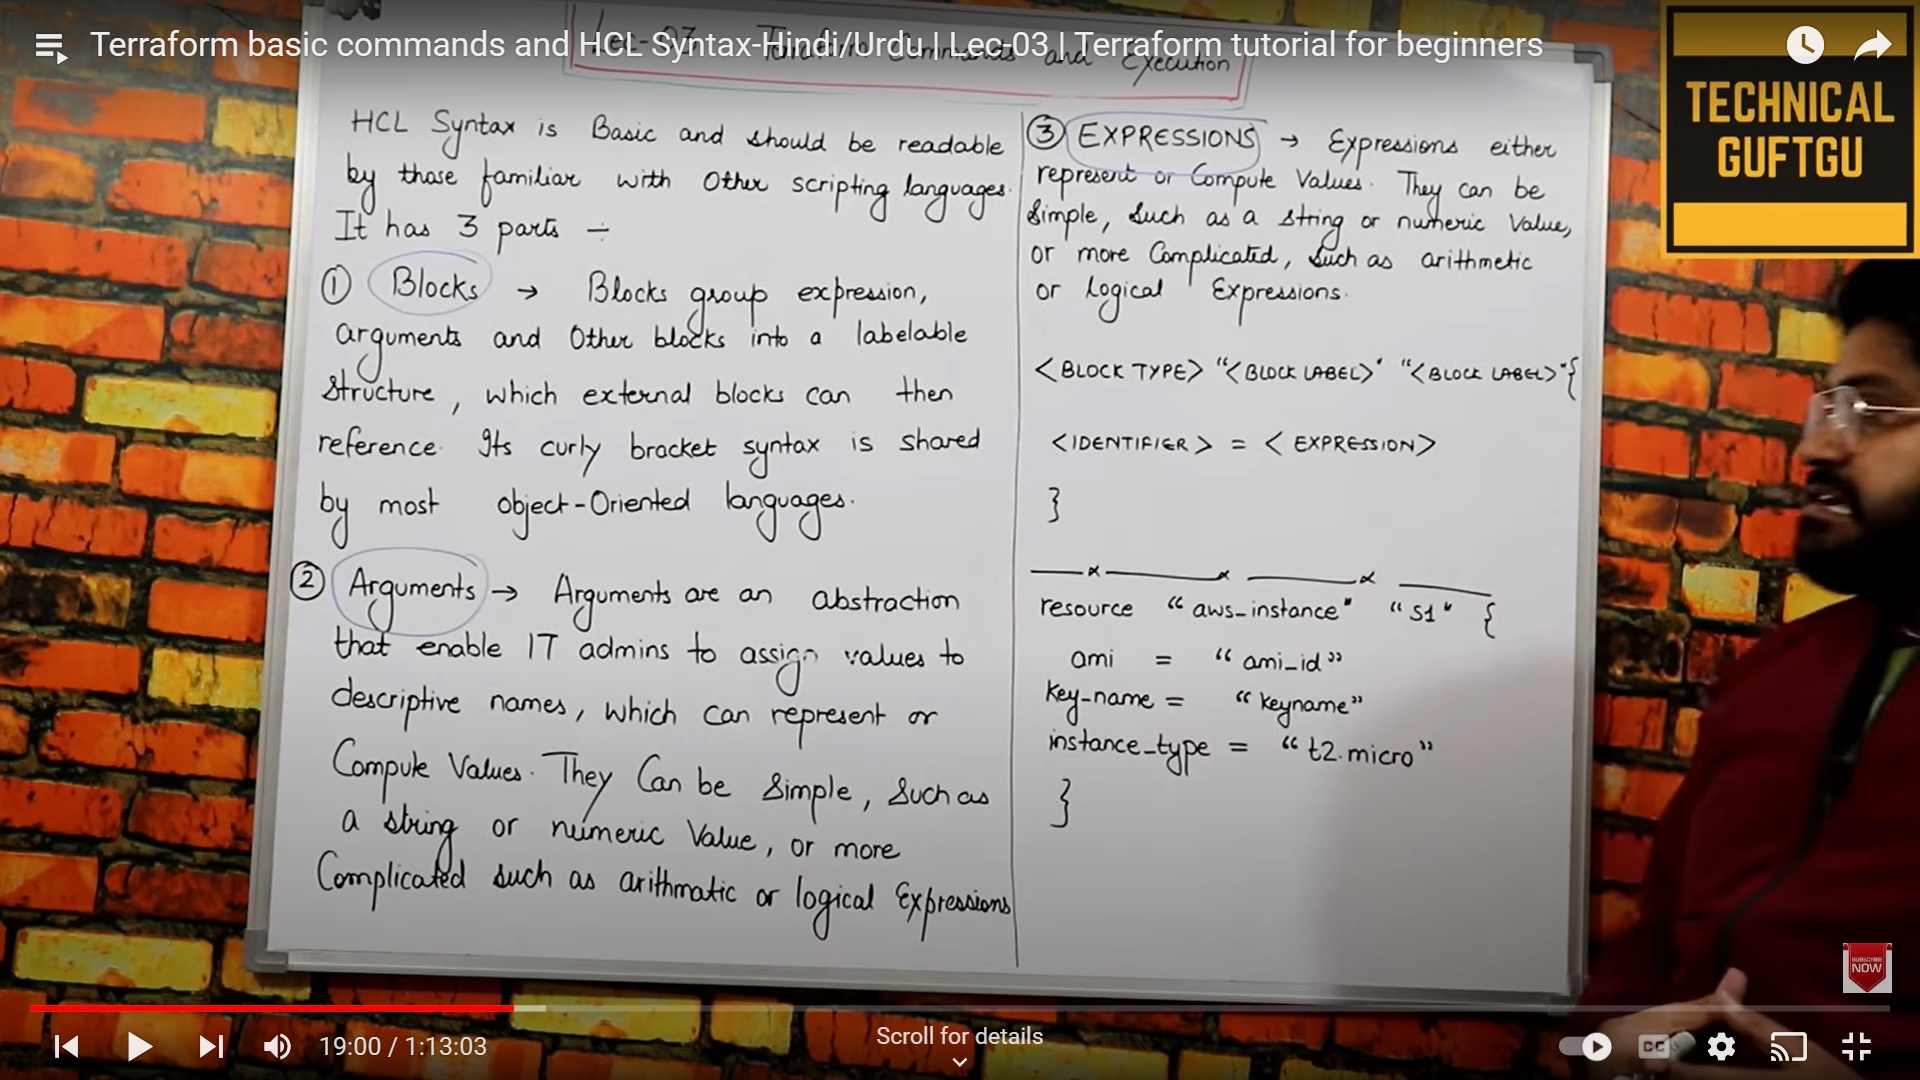 Terraform basic commands and HCL Syntax-Hindi/Urdu | Lec-03 | Terraform tutorial for beginners
Lec-03 Terraform Commands and Execution
TECHNICAL
GUFTGU
HCL Syntax is Basic and should be readable
by those familiar with Other scripting languages.
It has 3 parts ÷
① Blocks → Blocks group expression,
arguments and Other blocks into a labelable
Structure, which external blocks can then
reference. Its curly bracket syntax is shared
by most object-Oriented languages.
② Arguments → Arguments are an abstraction
that enable IT admins to assign values to
descriptive names, which can represent or
Compute Values. They Can be Simple, Such as
a string or numeric Value, or more
Complicated such as arithmatic or logical Expressions
③ EXPRESSIONS → Expressions either
represent or Compute Values. They can be
Simple, Such as a String or numeric Value,
or more Complicated, Such as arithmetic
or logical Expressions.
<BLOCK TYPE> "<BLOCK LABEL>" "<BLOCK LABEL>" {
<IDENTIFIER> = <EXPRESSION>
}
resource "aws_instance" "S1" {
ami = "ami_id"
key_name = "keyname"
instance_type = "t2.micro"
}
SUBSCRIBE
NOW
19:00 / 1:13:03
Scroll for details
CC